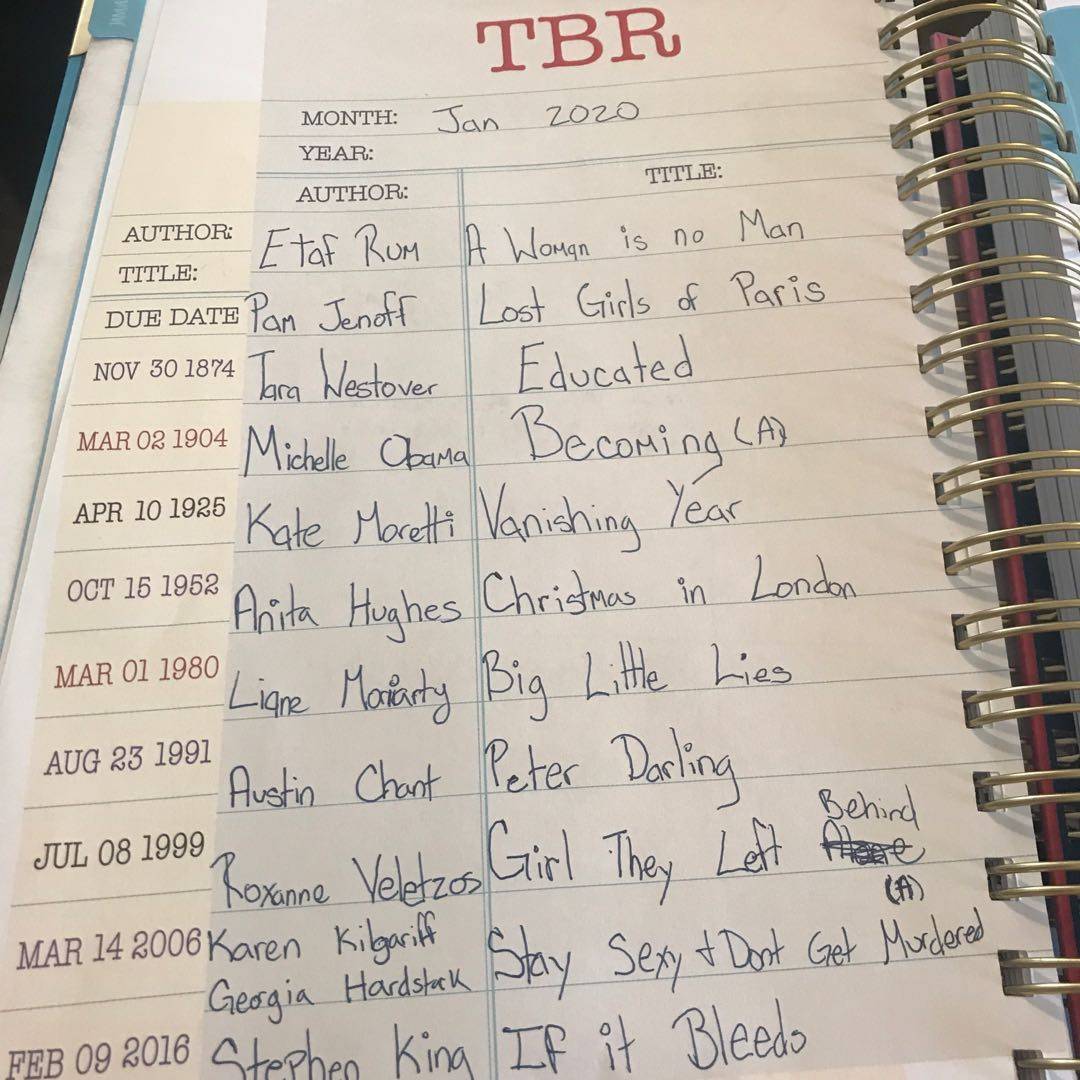 TBR
MONTH: Jan 2020
YEAR:
AUTHOR: TITLE:
AUTHOR: Etaf Rum A Woman is no Man
TITLE:
DUE DATE Pam Jenoff Lost Girls of Paris
NOV 30 1874 Tara Westover Educated
MAR 02 1904 Michelle Obama Becoming (A)
APR 10 1925 Kate Moretti Vanishing Year
OCT 15 1952 Anita Hughes Christmas in London
MAR 01 1980 Liane Moriarty Big Little Lies
AUG 23 1991 Austin Chant Peter Darling
JUL 08 1999 Roxanne Veletzos Girl They Left Behind
(A)
MAR 14 2006 Karen Kilgariff Stay Sexy + Dont Get Murdered
Georgia Hardstack
FEB 09 2016 Stephen King If it Bleeds